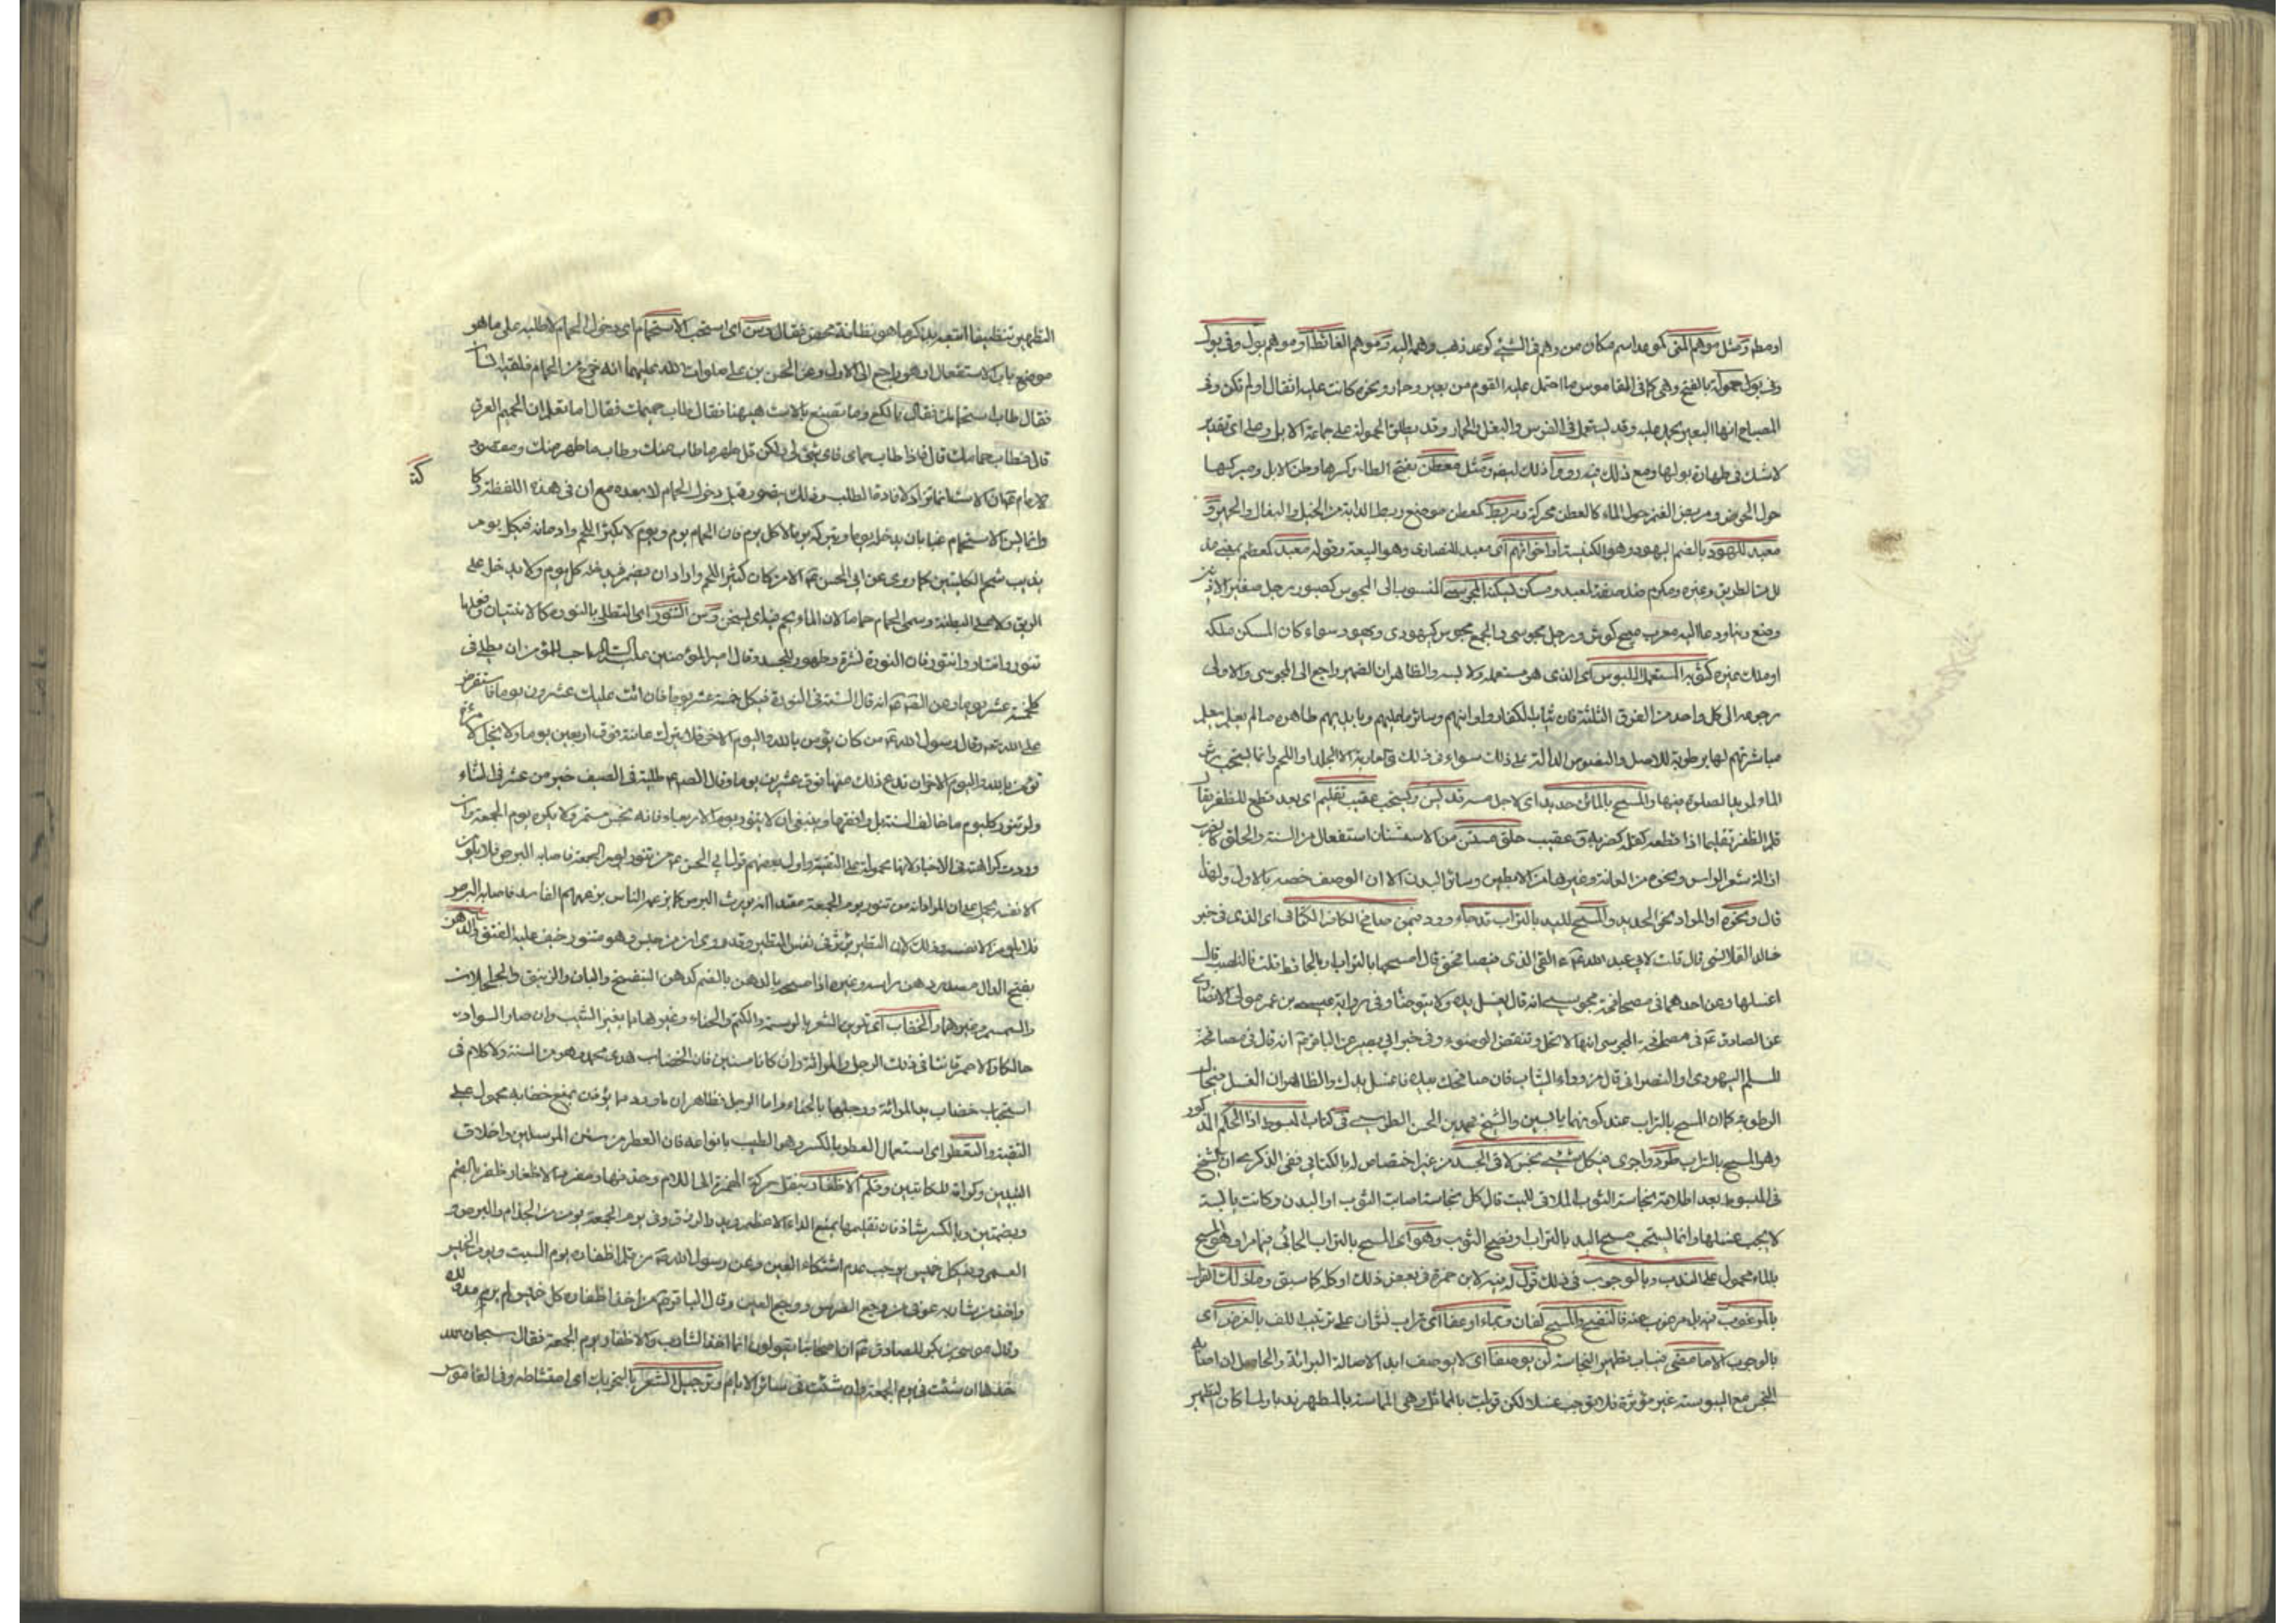 او مطر ومثل موهم المنى كموعد اسم مكان من وهم فى الشئ كوعد ذهب وهمه اليه وموهم الغائط او موهم بول وفى بول
وفى بول حمولة بالفتح وهى كما فى القاموس ما احتمل عليه القوم من بعير وحمار ونحوه كانت عليه اثقال او لم تكن وفى
المصباح انها البعير يحمل عليه وقد يستعمل فى الفرس والبغل والحمار وقد يطلق الحمولة على جماعة الابل وعلى اى تقدير
لا شك فى طهارة بولها ومع ذلك فيه ومثل معطن بفتح الطاء وكسرها وطن الابل ومبركها
حول الحوض ومربض الغنم حول الماء كالعطن محركة ومربط كمعطن موضع ربط الدابة من الخيل والبغال والحمير و
معبد لليهود بالضم اليهود وهو الكنيسة او اخوانهم اى معبد للنصارى وهو البيعة وقوله معبد كمعظم بمعنى مذ
لل من الطريق وغيره ومكرم ضد صفة لمعبد ومسكن يسكنه المجوسى المنسوب الى المجوس كصبور رجل صغير الاذنين
وضع دينا ودعا اليه معرب ميخ كوش ورجل مجوسى والجمع مجوس كيهودى ويهود سواء كان المسكن ملكه
او ملك غيره كثوبه المستعمل الملبوس اى الذى هو مستعمله ولابسه والظاهر ان الضمير راجع الى المجوسى والاولى
رجوعه الى كل واحد من الفرق الثلثة فان ثياب الكفار واوانيهم وسائر ما عليهم وبايديهم طاهرة ما لم يعلم
مباشرتهم لها برطوبة للاصل والنصوص الدالة على ذلك سواء فى ذلك الا الجلد واللحم وانما يستحب رش
الماء لمريد الصلوة فيها والمسح بالماء من حديد اى لاجل مسه ويستحب عقيب تقليم اى بعد قطع للظفر يقال
قلم الظفر تقليما اذا قطعه كقلمه كضربه وعقيب حلق من الاستنان استفعال من السنة والحلق كالضرب
ازالة شعر الراس ونحوه من العانة وغيرها من الابطين وسائر البدن الا ان الوصف خصه بالاول ولهذا
قال ونحوه او المراد نحو الحديد والمسح لليد بالتراب قد جاء وورد فيمن صافح الكافر الكتابى اى الذى فى خبر
خالد القلانسى قال قلت لابى عبد الله ع القى الذمى فيصافحنى قال امسحها بالتراب وبالحائط قلت فالناصب قال
اغسلها وعن احدهما فى مصافحة مجوسى انه قال يغسل يده ولا يتوضأ وفى رواية عيسى بن عمر مولى الانصار
عن الصادق ع فى مصافحة المجوسى انها لا تحل وتنقض الوضوء وفى خبر ابى بصير عن الباقر ع انه قال فى مصافحة
المسلم اليهودى او النصرانى قال من وراء الثياب فان صافحك بيده فاغسل يدك والظاهر ان الغسل
الرطوبة كما ان المسح بالتراب عند كونهما يابسين والشيخ محمد بن الحسن الطوسى فى كتاب المبسوط ذا الحكم المذكور
وهو المسح بالتراب طرد واجرى فى كل شئ نجس لاقى الجسد من غير اختصاص له بالكتابى ففى الذكرى ان الشيخ
فى المبسوط بعد اطلاقه نجاسة الثوب الملاقى للميت قال كل نجاسة اصابت الثوب او البدن وكانت يابسة
لا يجب غسلها وانما يستحب مسح اليد بالتراب او نضح الثوب وهو اى المسح بالتراب الجائى فيما مر او هو المسح
بالماء محمول على الندب وبالوجوب فى ذلك قول لمنه لابن حمزة فى بعض ذلك او كله كما سبق وما ذلك القول
بالمرغوب فيه بل مرغوب عنه فالنضح والمسح لفان وبماء او عفا اى تراب نشران على ترتيب اللف بالغرض اى
بالوجوب الا ما مضى فى باب تطهير النجاسة لن يوصفا اى لا يوصف ابدا لاصالة البرائة والحاصل ان اصابة
النجس مع اليبوسة غير مؤثرة فلا يوجب غسلا لكن قوبلت بالماثل وهى المماسة بالمطهر ندبا ولما كان التطهير
التطهير تنظيفا استتبعه بذكر ما هو نظافة محض فقال وسن اى استحب الاستحمام اى دخول الحمام لا طلبه على ما هو
موضع باب الاستفعال او هو راجع الى الاول وعن الحسن بن على صلوات الله عليهما انه خرج من الحمام فلقيه انسان
فقال طاب استحمامك فقال يا لكع وما تصنع بالاست هيهنا فقال طاب حميمك فقال اما تعلم ان الحميم العرق
قال فطاب حمامك قال فاذا طاب حمامى فاى شئ لى ولكن قل طهر ما طاب منك وطاب ما طهر منك ومقصود
الامام ع ان الاست انما تزاد لافادة الطلب وذلك يتصور قبل دخول الحمام لا بعده مع ان فى هذه اللفظة ركا
كة
وانما يسن الاستحمام غبا بان يدخله يوما ويتركه يوما لا كل يوم فان الحمام يوم ويوم لا يكثر اللحم وادمانه فى كل يوم
يذيب شحم الكليتين كما روى عن ابى الحسن ع الا من كان كثير اللحم واراد ان يضمر فيدخله كل يوم ولا يدخل على
الريق ولا على البطنة وسمى الحمام حماما لان الماء يحم فيه اى يسخن وسن التنور اى التطلى بالنورة كالانتيار فعلها
تنور وانتار وانتور فان النورة نشرة وطهور للجسد وقال امير المؤمنين عليه السلام احب للمؤمن ان يطلى فى
كل خمسة عشر يوما وعن الصادق ع انه قال السنة فى النورة فى كل خمسة عشر يوما فان اتت عليك عشرون يوما فاستقرض
على الله تعالى وقال رسول الله ص من كان يؤمن بالله واليوم الاخر فلا يترك عانته فوق اربعين يوما ولا يحل لامرأة
تؤمن بالله واليوم الاخر ان تدع ذلك منها فوق عشرين يوما وقال الص ع طلية فى الصيف خير من عشر فى الشتاء
ولو تنور كل يوم ما خالف السنة بل وافقها وينبغى ان لا يتنور يوم الاربعاء فانه نحس مستمر ولا يكره يوم الجمعة وان
وردت كراهته فى الاخبار لانها محمولة على التقية واول بعضهم قول ابى الحسن ع من تنور يوم الجمعة فاصابه البرص فلا يلومن
الا نفسه بحمل على ان المراد انه من تنور يوم الجمعة معتقدا انه يورث البرص كما يزعمه الناس بزعمهم الفاسد فاصابه البرص
فلا يلومن الا نفسه وذلك لان التطير يؤثر فى نفس المتطير وقد روى ان من جلس وهو متنور خيف عليه الفتق والدهن
بفتح الدال مصدر دهن راسه وغيره اذا مسحه بالدهن بالضم كدهن البنفسج والبان والزنبق والحل بالحاء
والسمسم وغيرهما والخضاب اى تلوين الشعر بالوسمة والكتم والحناء وغيرها بما يغير الشيب وان صار السواد
حالكا والاحمر قانيا فى ذلك الرجل والمرأة وان كانا مسنين فان الخضاب هدى محمد وهو من السنة ولا كلام فى
استحباب خضاب يد المرأة ورجليها بالحناء واما الرجل فظاهر ان ما ورد مما يؤذن بمنع خضابه محمول على
التقية والتعطر اى استعمال العطر بالكسر وهو الطيب بانواعه فان العطر من سنن المرسلين واخلاق
النبيين وكرامة للكاتبين وقلم الاظفار بنقل حركة الهمزة الى اللام وحذفها ومفرد الاظفار ظفر بالضم
وبضمتين وبالكسر شاذ فان تقليمها يمنع الداء الاعظم ويدر الرزق وفى يوم الجمعة يؤمن من الجذام والبرص و
العمى وفى كل خميس يوجب عدم اشتكاء العين وعن رسول الله ص من قلم اظفاره يوم السبت ويوم الخميس
واخذ من شاربه عوفى من وجع الضرس ووجع العين وقال الباقر ع من اخذ اظفاره كل خميس لم يرمد ولده
وقال موسى بن بكر للصادق ع ان اصحابنا يقولون انما اخذ الشارب والاظفار يوم الجمعة فقال سبحان الله
خذها ان شئت فى يوم الجمعة وان شئت فى سائر الايام وترجيل الشعر بالتحريك اى امتشاطه وفى القاموس